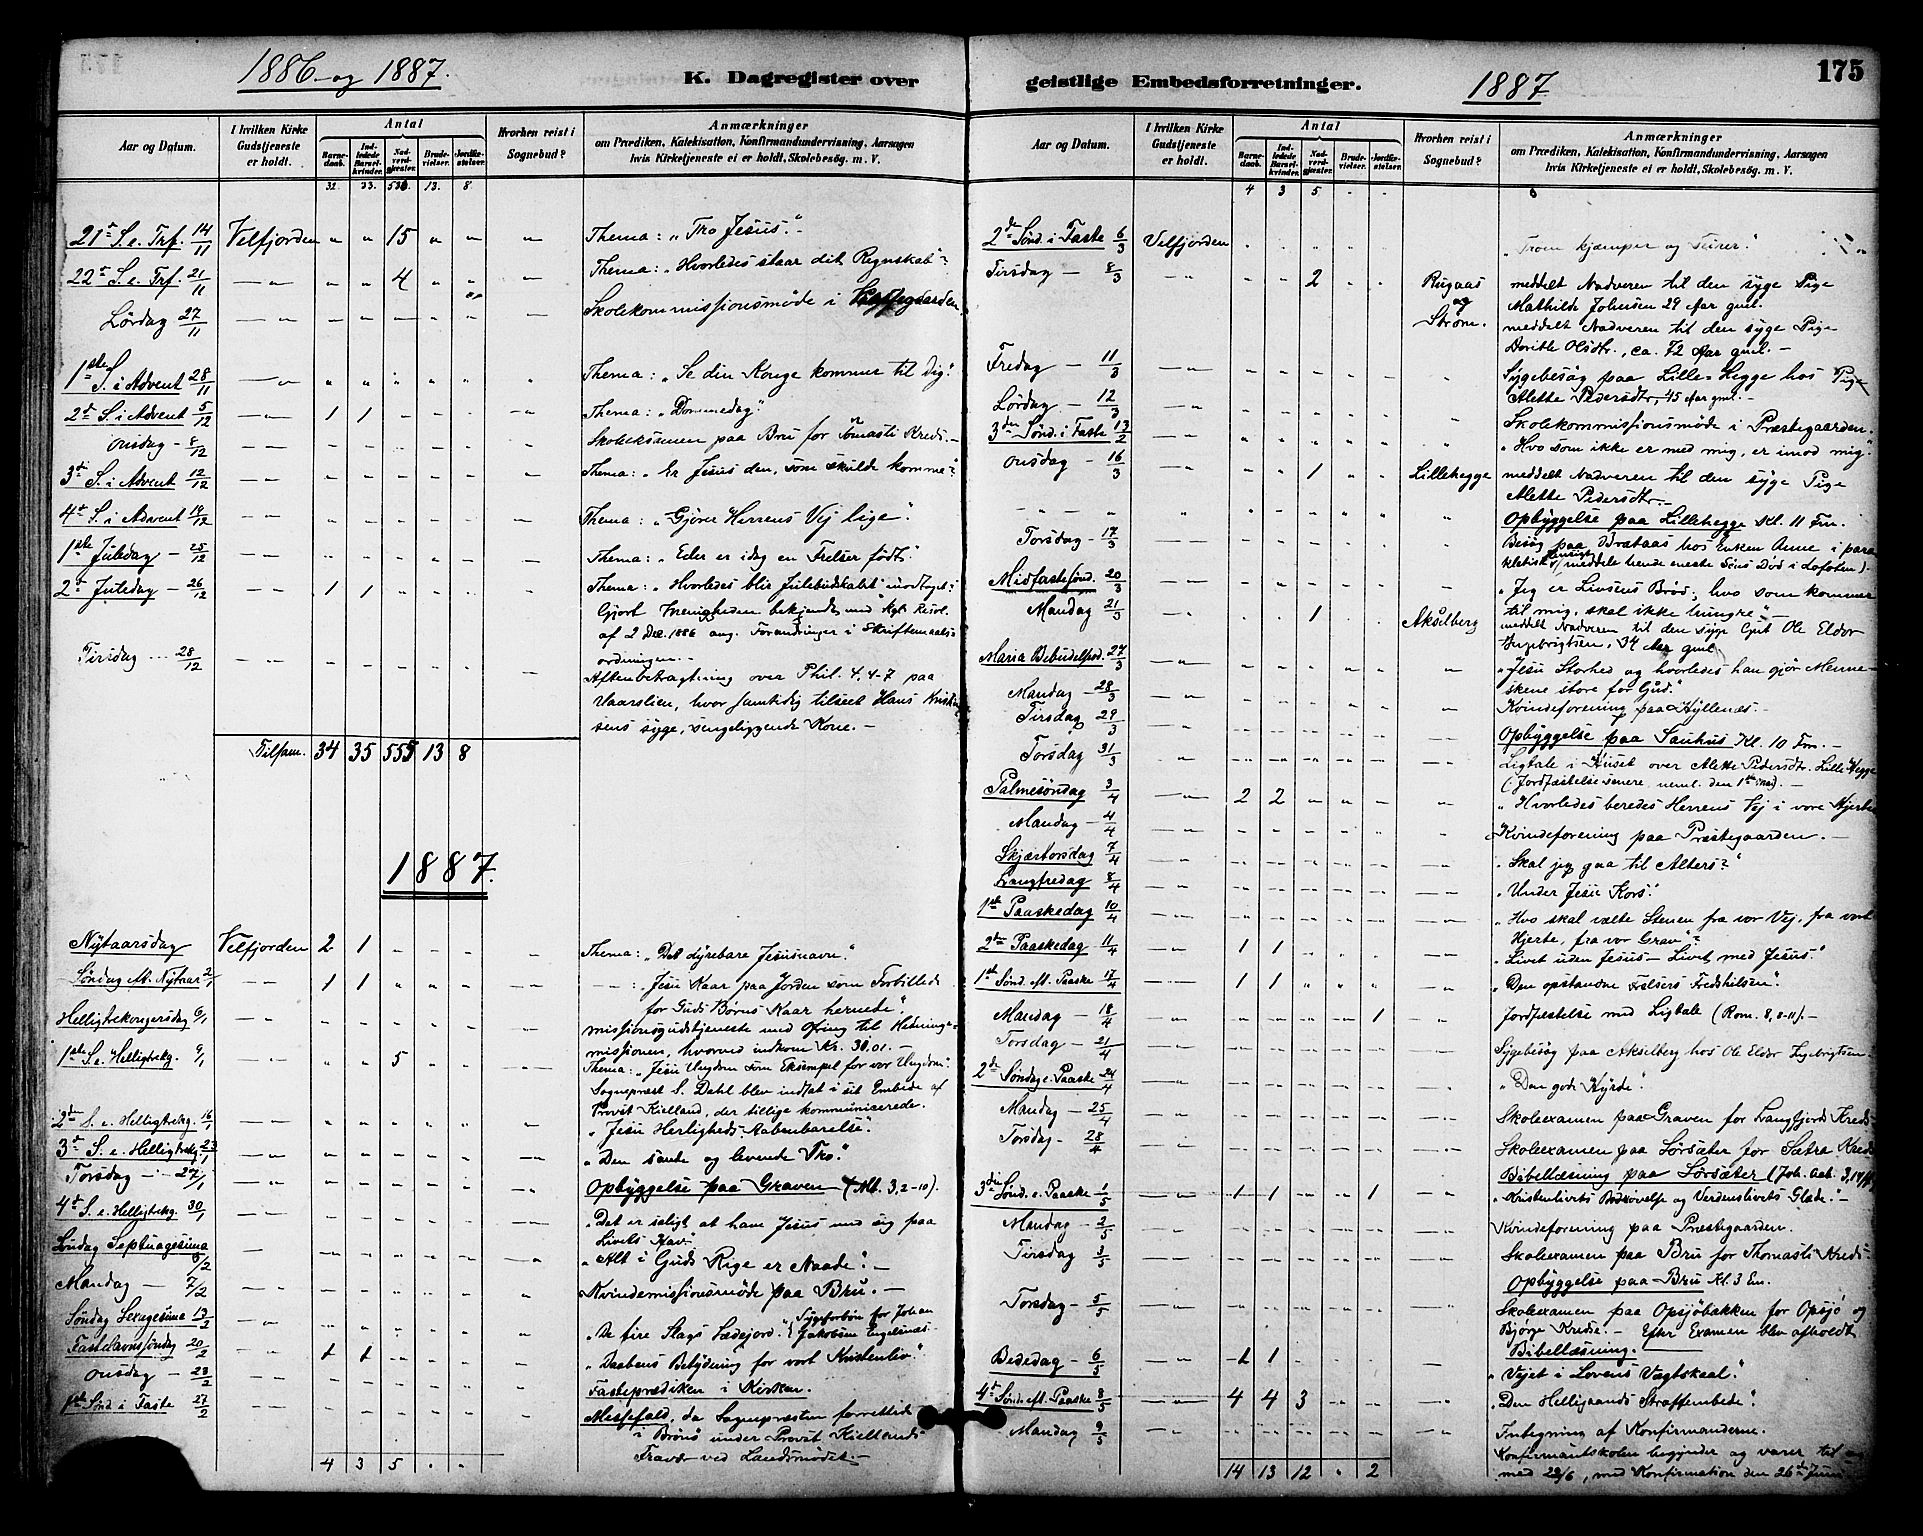 1886 og 1887.
K. Dagregister over
Aar og Datum.
I hvilken Kirke Gudstjeneste er holdt.
Antal
Barnedaab.
Indledede Barselkvinder.
Nadverdgjester.
Brudevielser.
Jordfæstelser.
Hvorhen reist i Sognebud?
Anmærkninger
om Prædiken, Katekisation, Konfirmandundervisning, Aarsagen
hvis Kirketjeneste ei er holdt, Skolebesøg. m. V.
32. 33. 536. 13. 8.
21de S. e. Trf. 14/11 Velfjorden " " 15 " " — Thema: „Tro Jesus."
22de S. e. Trf. 21/11 — " — " " 4 " " — Thema: „Hvorledes staar dit Regnskab"?
Lørdag 27/11 — " — Skolekommissionsmøde i
1ste S. i Advent 28/11 — " — Thema: „Se din Konge kommer til dig."
2de S. i Advent 5/12 — " — 1 1 Thema: „Dommedag."
Onsdag — 8/12 Skoleeksamen paa Bru for Tomasli Kreds. —
3de S. i Advent 12/12 Thema: „Er Jesus den, som skulde komme"?
4de S. i Advent 19/12 Thema: „Gjører Herrens Vej lige".
1ste Juledag — 25/12 Thema: „Eder er idag en Frelser født"
2den Juledag — 26/12 1 1 Thema: „Hvorledes blir Julebudskabet modtaget.
Gjort Menigheden bekjendt med Kgl. Resol.
af 2 Dec. 1886 ang. Forandringer i Skriftemaals-
ordningen. —
Tirsdag — 28/12 Aftenbetragtning over Phil. 4, 4-7 paa
Vaarslien, hvor samtidig tilseet Hans Kristen-
sens syge, sengeliggende Kone. —
Tilsam. 34 35 555 13 8
1887.
Nytaarsdag Velfjorden 2 1 Thema: „Det dyrebare Jesusnavn".
Søndag ef. Nytaar 2/1 1 1 — : „Jesu Kaar paa Jorden som Forbillede
for Guds Børns Kaar hernede".
Helligtrekongersdag 6/1 missionsgudstjeneste med Ofring til Hednings-
missionen, hvorved indkom Kr. 30.01. —
1ste S. e. Helligtrekg. 9/1 5 Thema: „Jesu Ungdom som Eksempel for vor Ungdom".
Sognepræst S. Dahl blev indsat i sit Embede af
Provst Kielland, der tillige kommunicerede.
2den S. e. Helligtrekg. 16/1 „Jesu Herligheds Aabenbarelse".
3de S. e. Helligtrekg 23/1 „Den sande og levende Tro".
Torsdag — 27/1 Opbyggelse paa Graven (Mt. 3, 2-10).
4de S. e. Helligtrekg. 30/1 „Det er saligt at have Jesus med sig paa
Livets Hav"
Søndag Septuagesima 6/2 „Alt i Guds Rige er Naade". —
Mandag — 7/2 Kvindemissionsmøde paa Bru. —
Søndag Sexagesima 13/2 „De fire Slags Sædejord." Sygeforbøn for Johan Jakobsen Engelsnæs.
Fastelavnssøndag 20/2 1 1 „Daabens Betydning for vort Kristenliv".
Onsdag — 23/2 Fasteprædiken i Kirken.
1ste Sønd i Faste 27/2 Messefald, da Sognepræsten forrettede
i Brønø under Provst Kiellands
Fravær ved Landsmødet. —
4 3 5 " "
geistlige Embedsforretninger.
1887
175
Aar og Datum.
I hvilken Kirke Gudstjeneste er holdt.
Antal
Barnedaab.
Indledede Barselkvinder.
Nadverdgjester.
Brudevielser.
Jordfæstelser.
Hvorhen reist i Sognebud?
Anmærkninger
om Prædiken, Katekisation, Konfirmandundervisning, Aarsagen
hvis Kirketjeneste ei er holdt, Skolebesøg. m. V.
4 3 5 - -
2de Sønd. i Faste 6/3 Velfjorden „Troen kjæmper og Seirer."
Tirsdag — 8/3 2 Rugaas og Strøm. meddelt Nadveren til den syge Pige
Mathilde Johnsen 29 Aar gml.
meddelt Nadveren til den syge Pige
Dorithe Olsdtr., ca. 72 Aar gml. —
Fredag — 11/3 Sygebesøg paa Lille-Hegge hos Pige
Alette Pedersdtr, 45 Aar gml. —
Lørdag — 12/3 Skolekommissionsmøde i Præstegaarden.
3die Sønd. i Faste 13/2 „Hvo som ikke er med mig, er imod mig."
Onsdag — 16/3 1 Lillehegge meddelt Nadveren til den syge Pige
Alette Pedersdtr. —
Opbyggelse paa Lillehegge Kl. 11 Fm.
Torsdag — 17/3 Besøg paa Brataas hos Enken Anne i para-
kletisk Hensigt (meddele hende eneste Søns Død i Lofoten).
Midfastesønd. 20/3 „Jeg er Livsens Brød; hvo som kommer
til mig, skal ikke hungre".
Mandag 21/3 1 Akselberg meddelt Nadveren til den syge Gut Ole Eldor
Ingebrigtsen, 34 Aar gml.
Maria Bebudelsesd. 27/3 „Jesu Storhed og hvorledes han gjør Menne-
skene store for Gud."
Mandag — 28/3 Kvindeforening paa Hyllenæs.—
Tirsdag 29/3 Opbyggelse paa Sauhus Kl. 10 Fm. —
Torsdag 31/3 Ligtale i Huset over Alette Pedersdtr. Lille Hegge
(Jordfæstelse senere neml. den 1ste Mai). —
Palmesøndag 3/4 2 2 „Hvorledes beredes Herrens Vej i vore Hjerter
Mandag — 4/4 Kvindeforening paa Præstegaarden. —
Skjærtorsdag 7/4 „Skal jeg gaa til Alters?"
Langfredag 8/4 „Under Jesu Kors".
1ste Paaskedag 10/4 „Hvo skal vælte Stenen fra vor Vej, fra vort
Hjerte, fra vor Grav"?
2den Paaskedag 11/4 1 1 „Livet uden Jesus — Livet med Jesus".
1ste Sønd. ef. Paaske 17/4 1 1 „Den opstandne Frelsers Fredshilsen".
Mandag — 18/4 1 Jordfæstelse med Ligtale (Rom. 8, 8-11). —
Torsdag — 21/4 Sygebesøg paa Akselberg hos Ole Eldor Ingebrigtsen
2den Søndag e. Paaske 24/4 „Den gode Hyrde".
Mandag — 25/4 Skoleexamen paa Graven for Langfjords Kreds.
Torsdag — 28/4 Skoleexamen paa Sørsæter for Sætra Kreds
Bibellæsning paa Sørsæter (Joh. Aab. 3, 14 ff)
3die Sønd. e. Paaske 1/5 1 1 1 „Kristenlivets Bedrøvelse og Verdenslivets Glæde". —
Mandag — 2/5 Kvindeforening paa Præstegaarden.
Tirsdag 3/5 Skoleexamen paa Bru for Thomasli Kreds
Opbyggelse paa Bru Kl. 3 Em.
Torsdag — 5/5 Skoleexamen paa Opsjøbakken for Opsjø og
Bjørge Kredse. — Efter Examen blev afholdt
Bibellæsning. —
Bededag — 6/5 1 1 „Vejet i Lovens Vægtskaal".
4de Sønd. ef. Paaske 8/5 4 4 3 „Den Helligaands Straffembede".
Mandag 9/5 Indtegning af Konfirmanderne.
Konfirmantskolen begynder og varer til og
med 22/6, med Konfirmation den 26de Juni
14 13 12 " 2